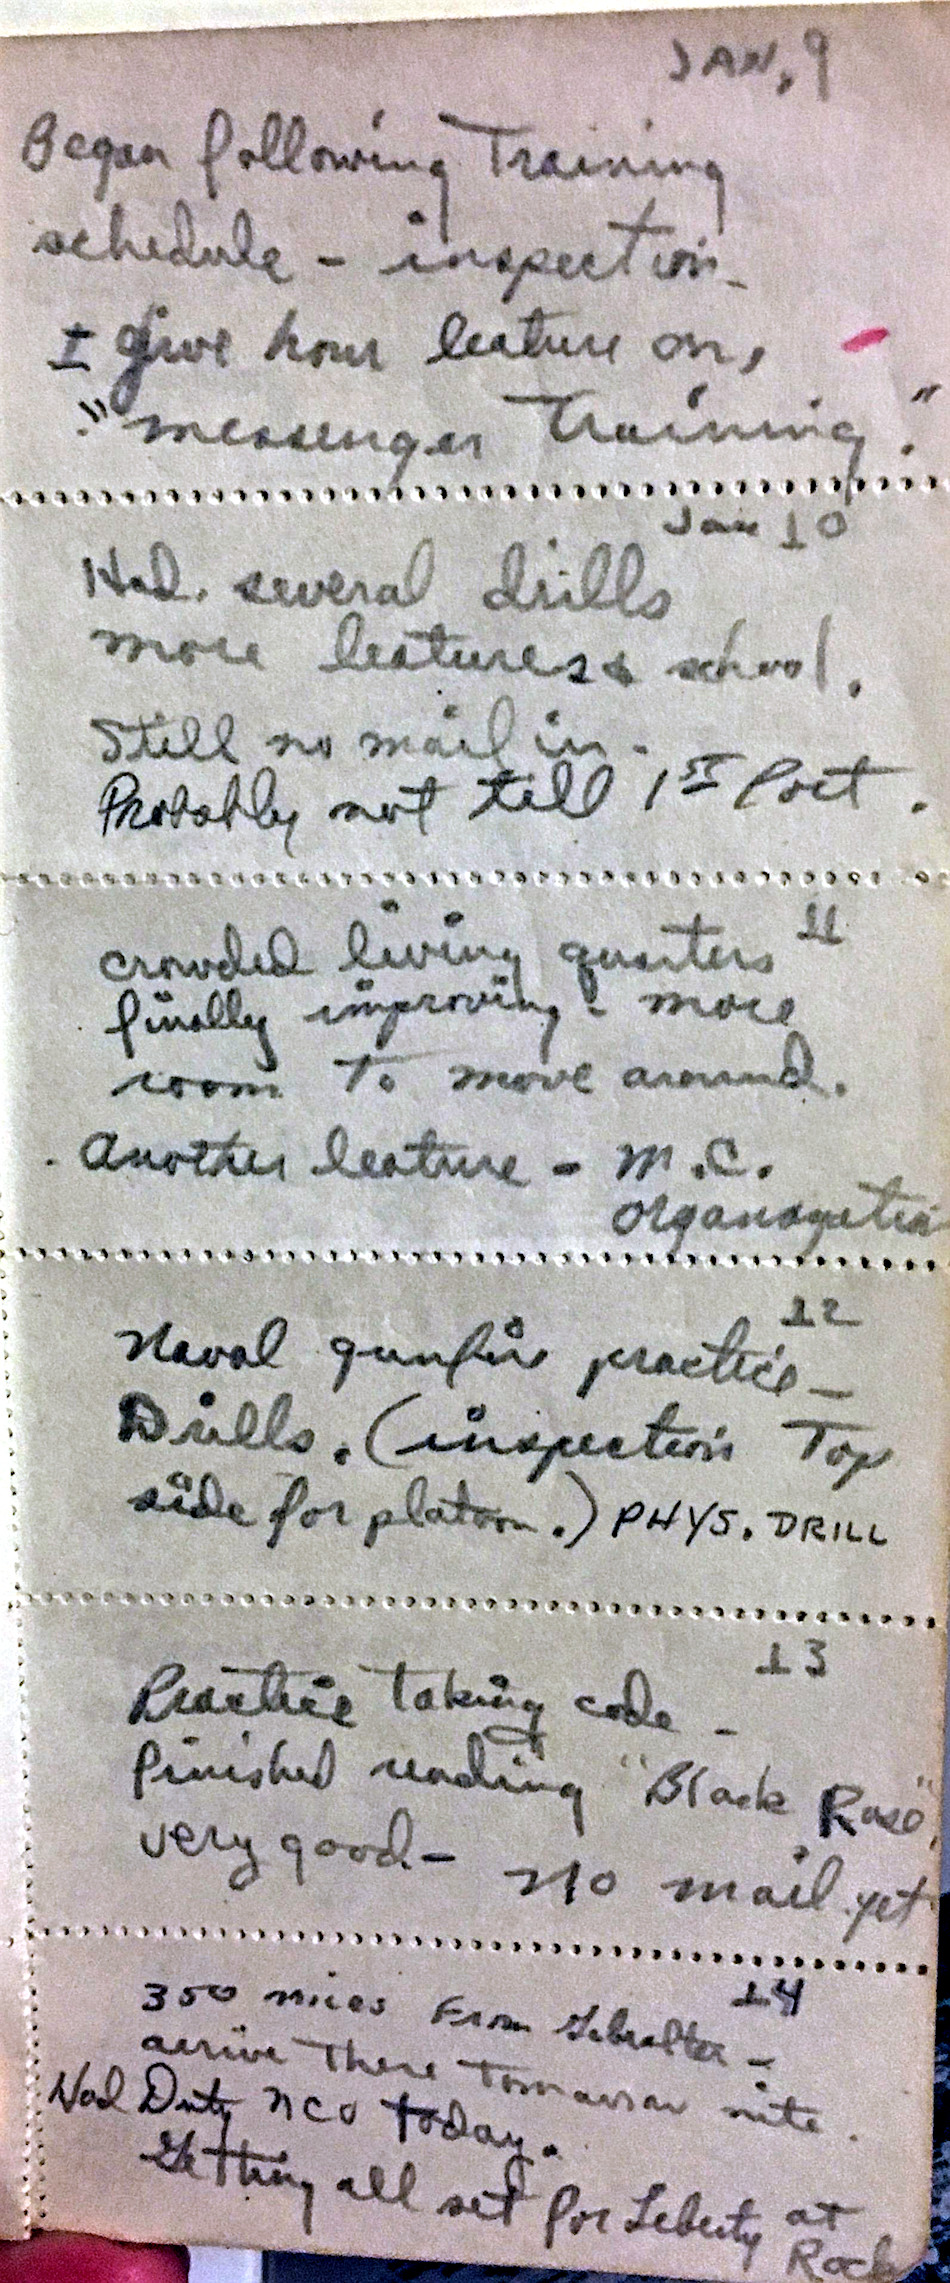 JAN, 9
Began following Training
schedule - inspection -
I give hour leature on,
"messenger Training."
Jan 10
Had. several drills
more leatures & school.
Still no mail in -
Probably not till 1ST Port.
11
crowded living quarters
finally improving - more
room to move around.
Another leature - M.C.
organization
12
Naval gunfire practice -
Drills. (inspection Top
side for platoon.) PHYS. DRILL
13
Practice taking code -
finished reading "Black Rose",
very good - No mail yet
14
350 miles From Gibralter -
arrive There Tomorrow nite.
Had Duty NCO today.
Getting all set for Liberty at
Rock